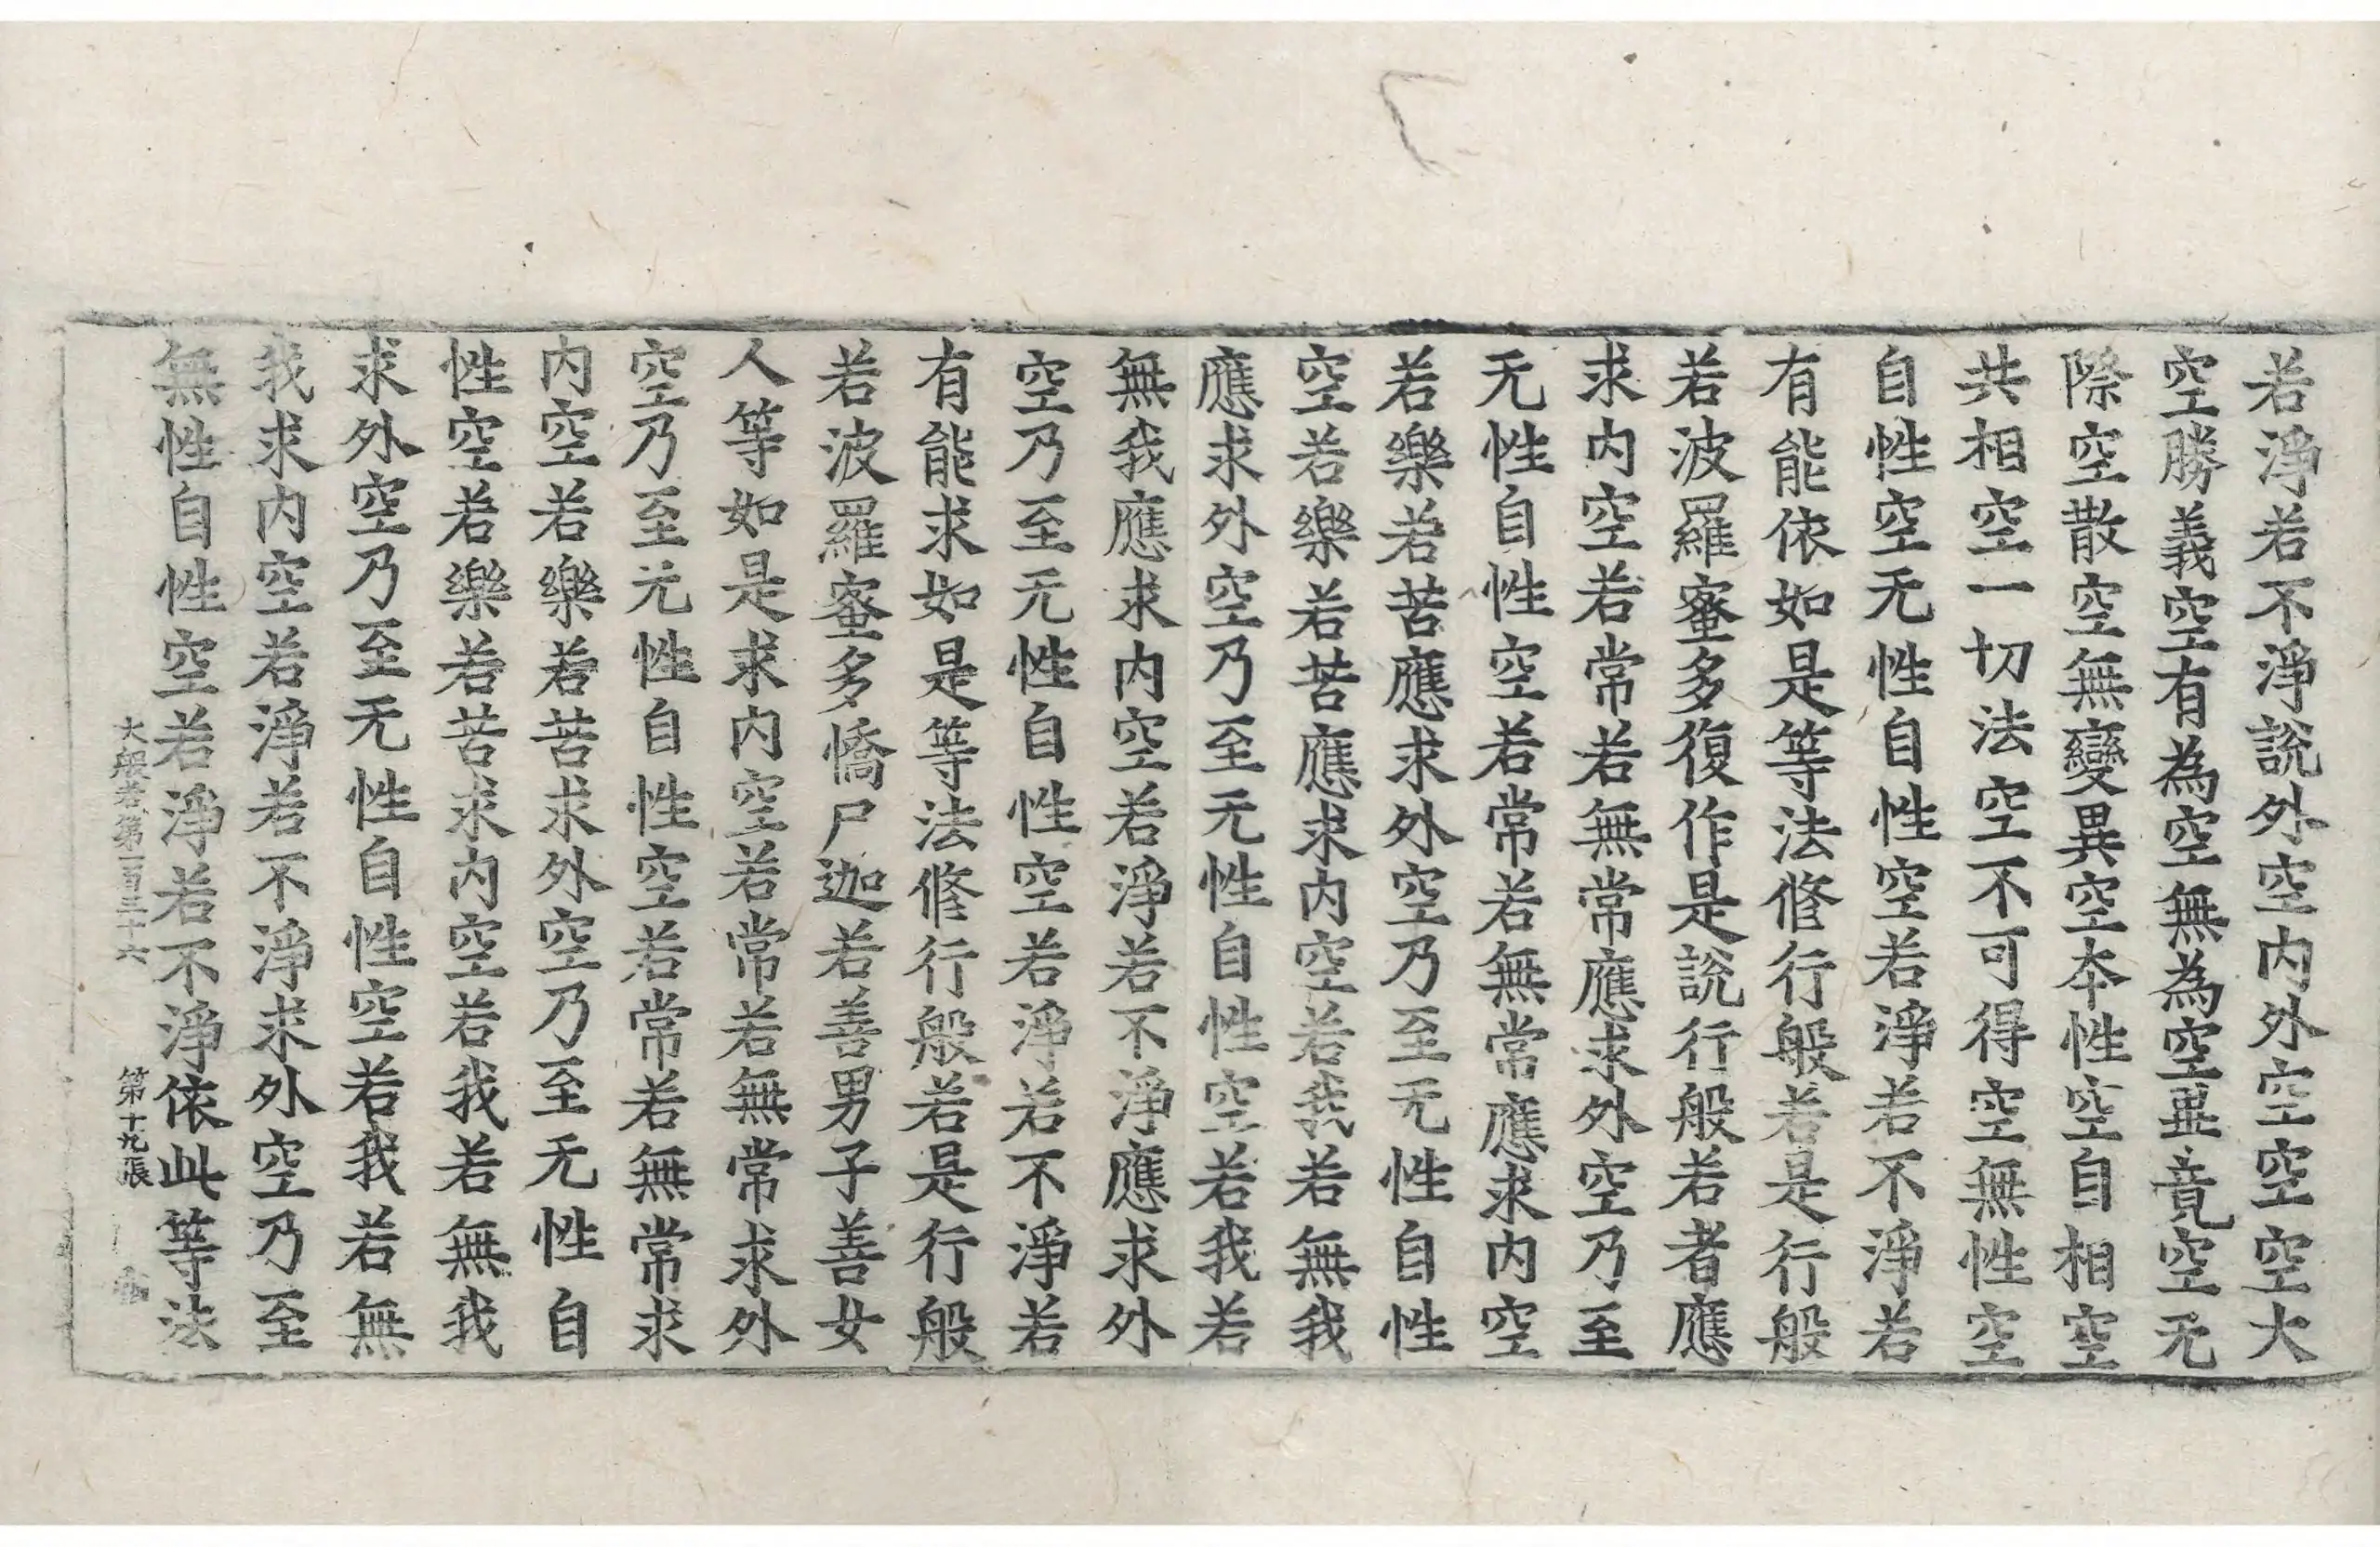 若淨若不淨說外空內外空空空大
空勝義空有為空無為空畢竟空无
際空散空無變異空本性空自相空
共相空一切法空不可得空無性空
自性空无性自性空若淨若不淨若
有能依如是等法修行般若是行般
若波羅蜜多復作是說行般若者應
求內空若常若無常應求外空乃至
无性自性空若常若無常應求內空
若樂若苦應求外空乃至无性自性
空若樂若苦應求內空若我若無我
應求外空乃至无性自性空若我若
無我應求內空若淨若不淨應求外
空乃至无性自性空若淨若不淨若
有能求如是等法修行般若是行般
若波羅蜜多憍尸迦若善男子善女
人等如是求內空若常若無常求外
空乃至无性自性空若常若無常求
內空若樂若苦求外空乃至无性自
性空若樂若苦求內空若我若無我
求外空乃至无性自性空若我若無
我求內空若淨若不淨求外空乃至
無性自性空若淨若不淨依此等法
大般若第一百三十六 第十九張